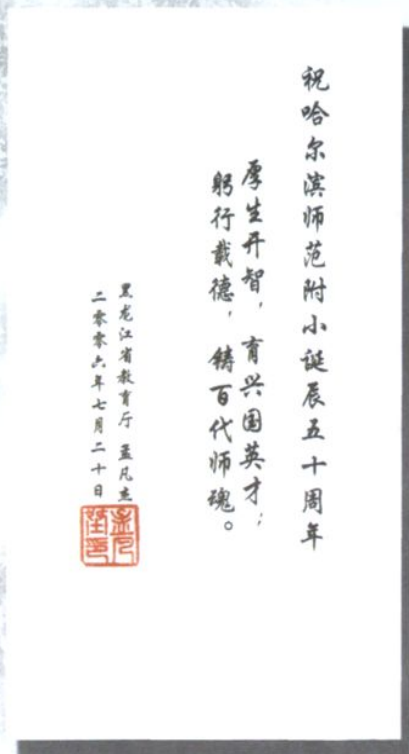 祝哈尔滨师范附小诞辰五十周年
厚生开智，育兴国英才；
躬行载德，铸百代师魂。
黑龙江省教育厅 孟凡杰
二零零六年七月二十日